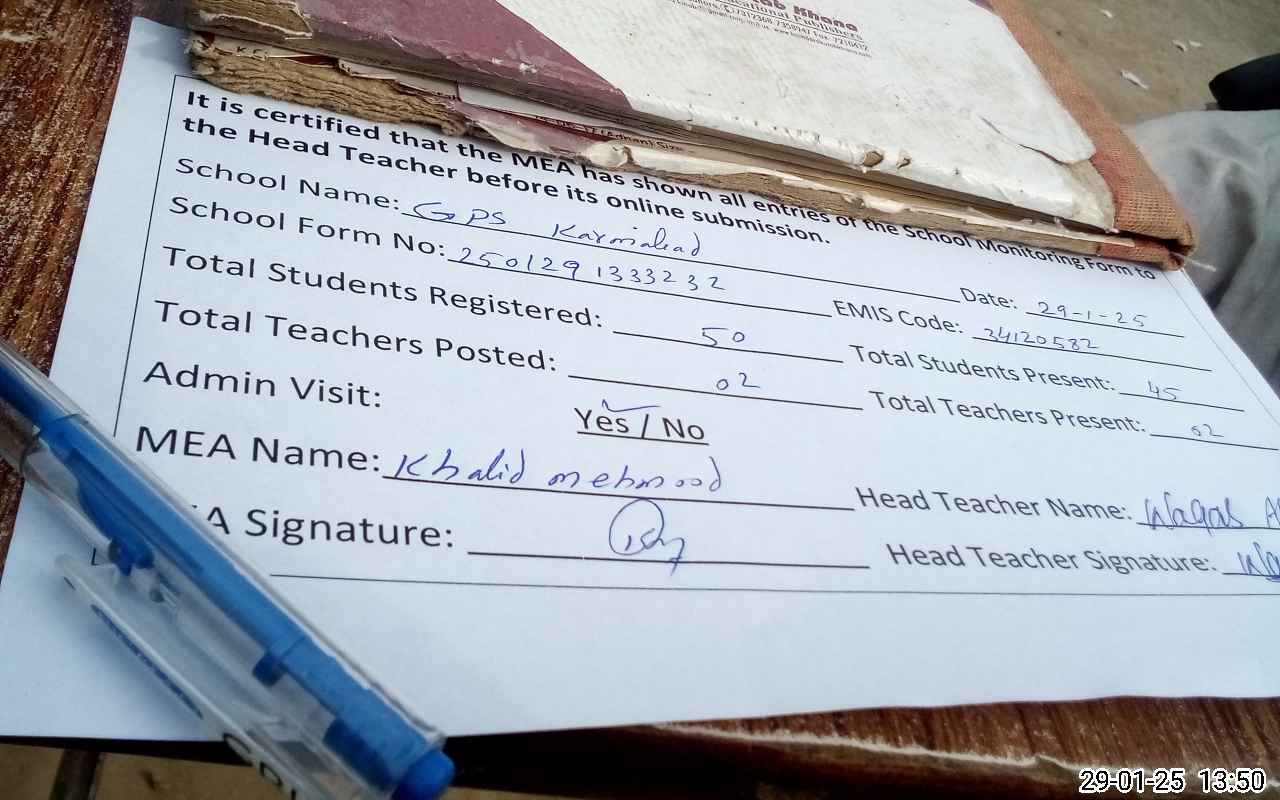 Educational Publishers
It is certified that the MEA has shown all entries of the School Monitoring Form to
the Head Teacher before its online submission.
School Name: GPS Karmiabad Date: 29-1-25
School Form No: 250129 1333232 EMIS Code: 34120582
Total Students Registered: 50 Total Students Present: 45
Total Teachers Posted: 02 Total Teachers Present: 02
Admin Visit: Yes / No
MEA Name: Khalid mehmood Head Teacher Name: Waqas
Signature: Head Teacher Signature:
29-01-25 13:50